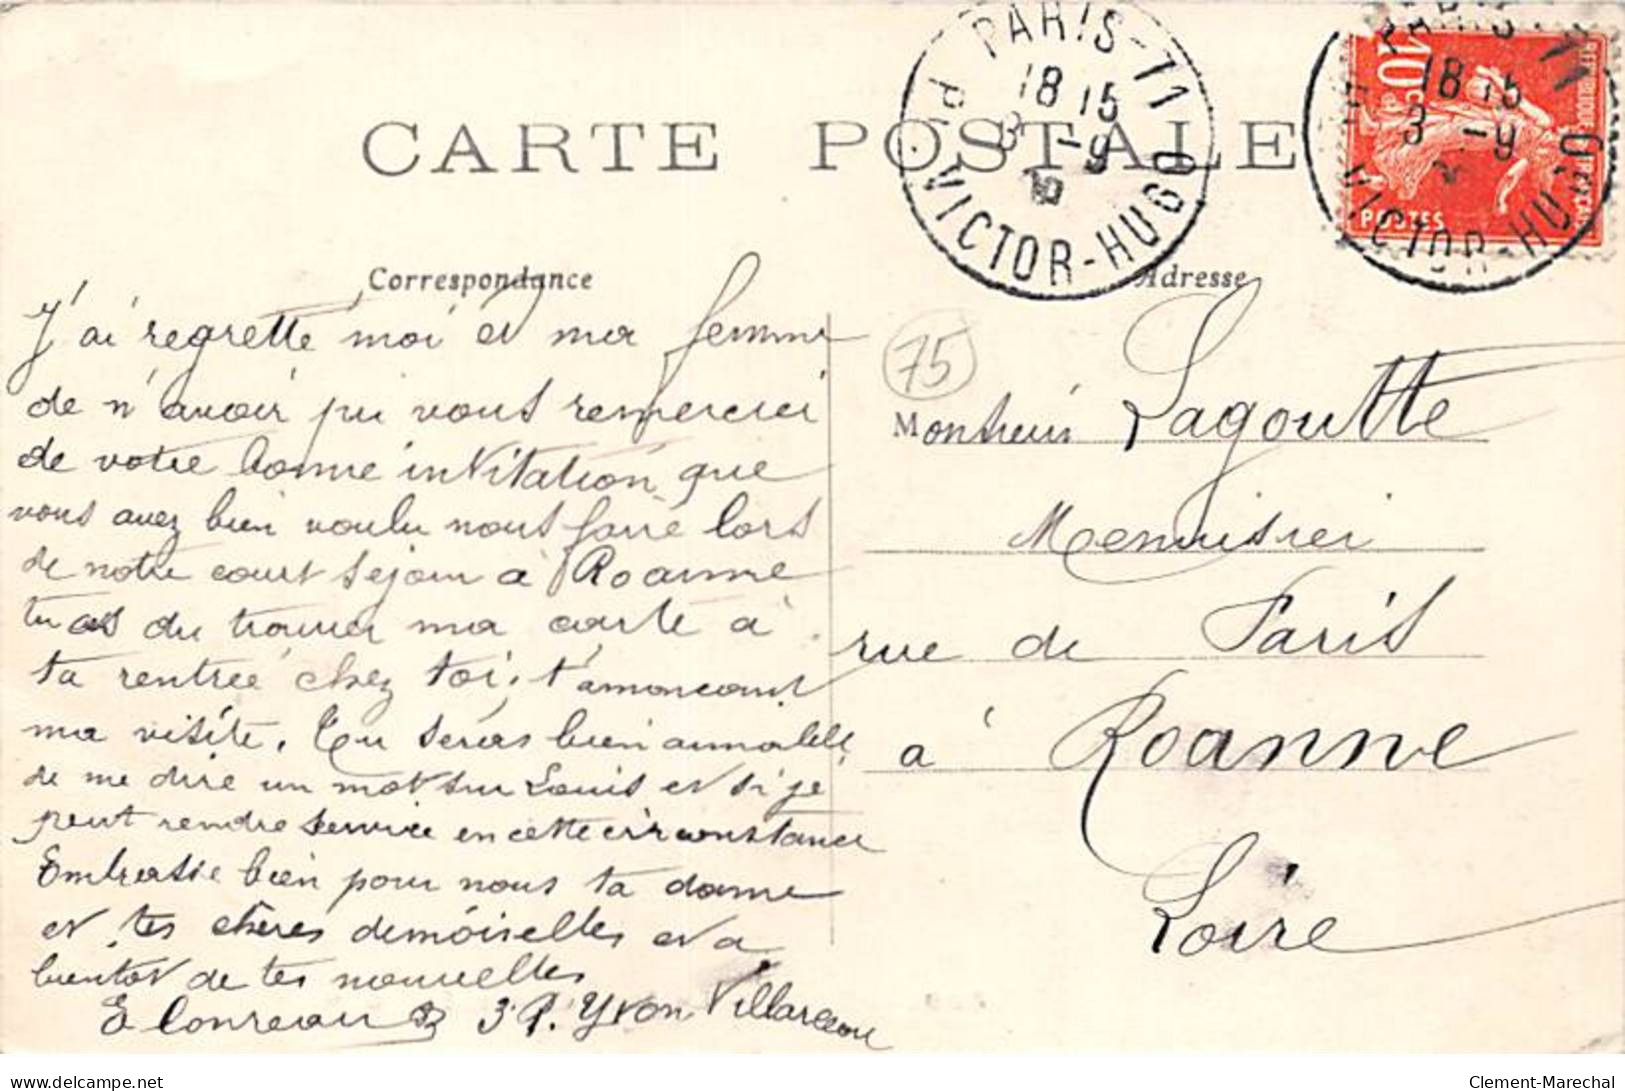 CARTE POSTALE
PARIS-71
18 15
3 -9
PL. VICTOR-HUGO
PARIS 71
18 15
3 -9
VICTOR-HUGO
10c
POSTES
Correspondance
Adresse
J'ai regretté moi et ma femme
de n'avoir pu vous remercier
de votre bonne invitation que
vous avez bien voulu nous faire lors
de notre court séjour à Roanne
tu as du trouver ma carte à
ta rentrée chez toi, t'anoncant
ma visite. Tu seras bien aimable
de me dire un mot sur Louis et si je
peut rendre service en cette circonstance
Embrasse bien pour nous ta dame
et tes chères demoiselles et a
bientot de tes nouvelles
3 P. Yvon Villarceau
75
Monsieur Lagoutte
Menuisier
rue de Paris
à Roanne
Loire
delcampe.net
Clement-Marechal